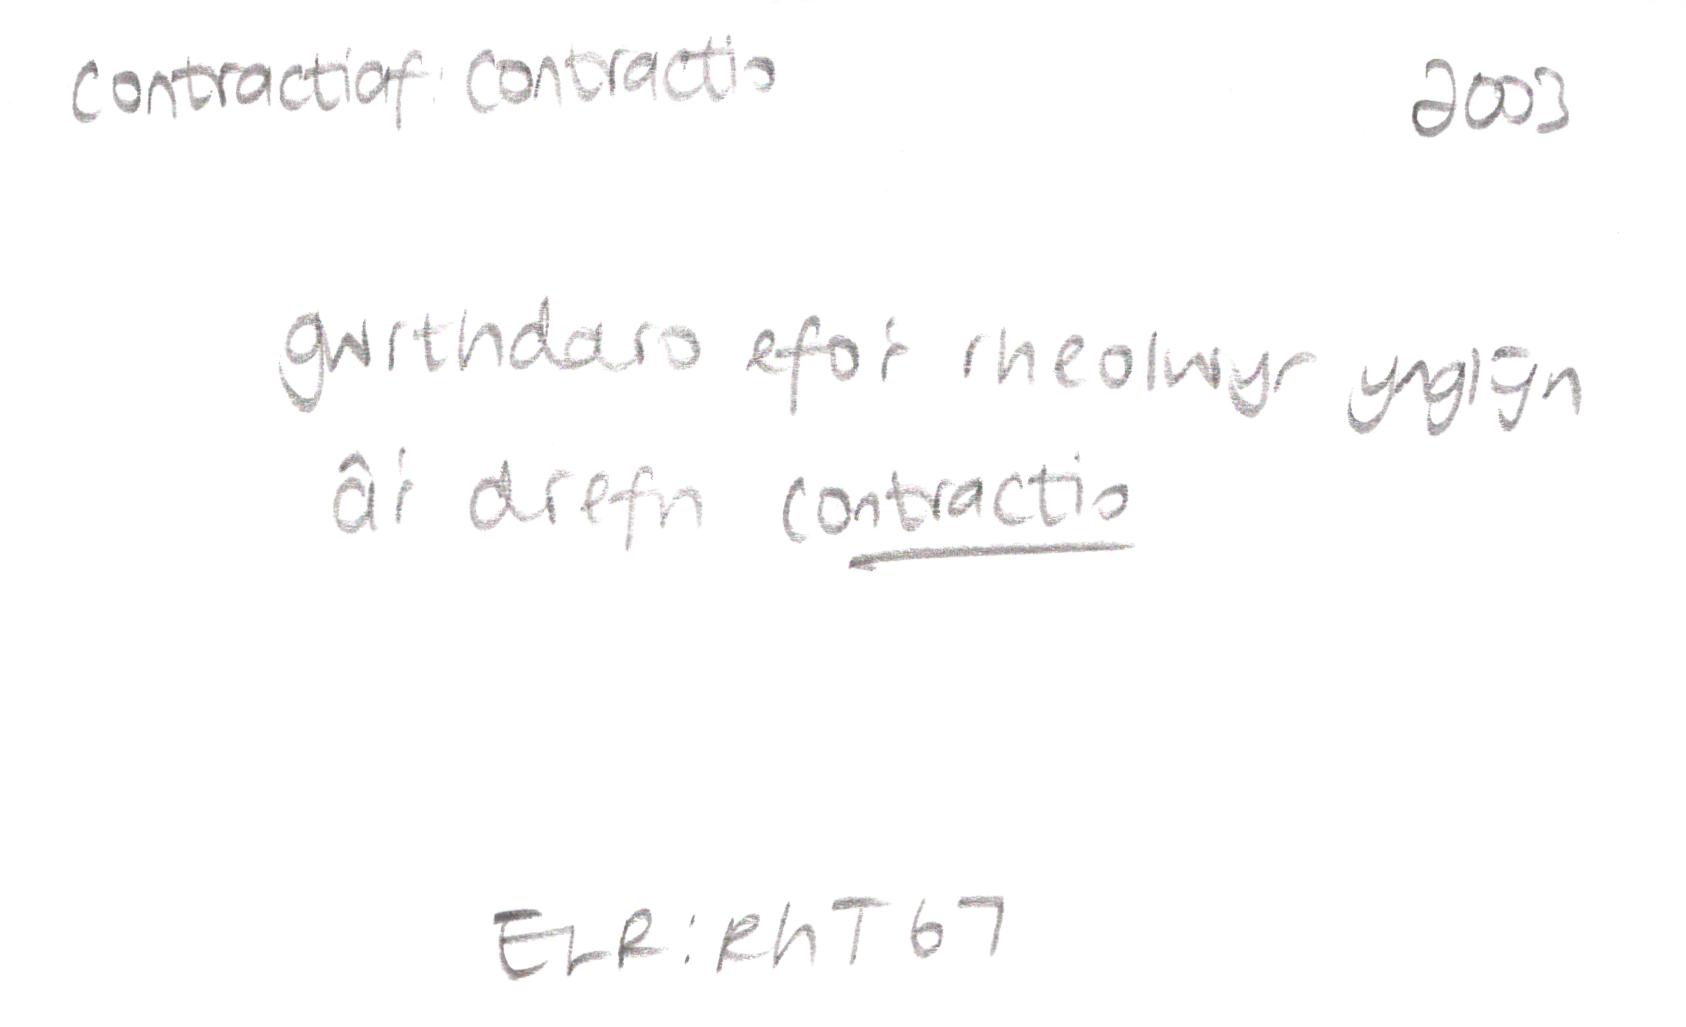 contractiaf: contractio 2003
gwrthdaro efo'r rheolwyr ynglŷn
â'r drefn contractio
ELR: RhT 67